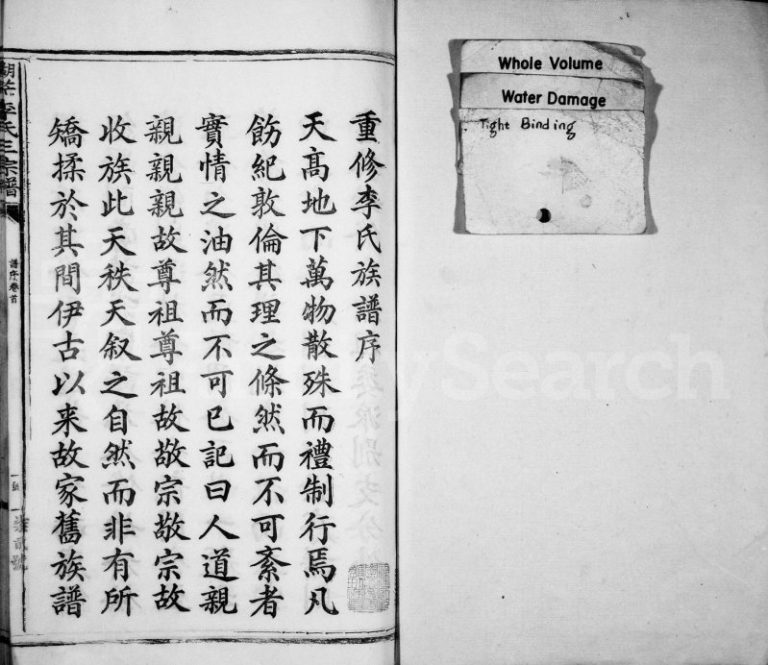 Whole Volume
Water Damage
Tight Binding
重修李氏族譜序
天高地下萬物散殊而禮制行焉凡
飭紀敦倫其理之條然而不可紊者
實情之油然而不可已記曰人道親
親親親故尊祖尊祖故敬宗敬宗故
收族此天秩天叙之自然而非有所
矯揉於其間伊古以来故家舊族譜
李氏三宗譜
譜序卷首